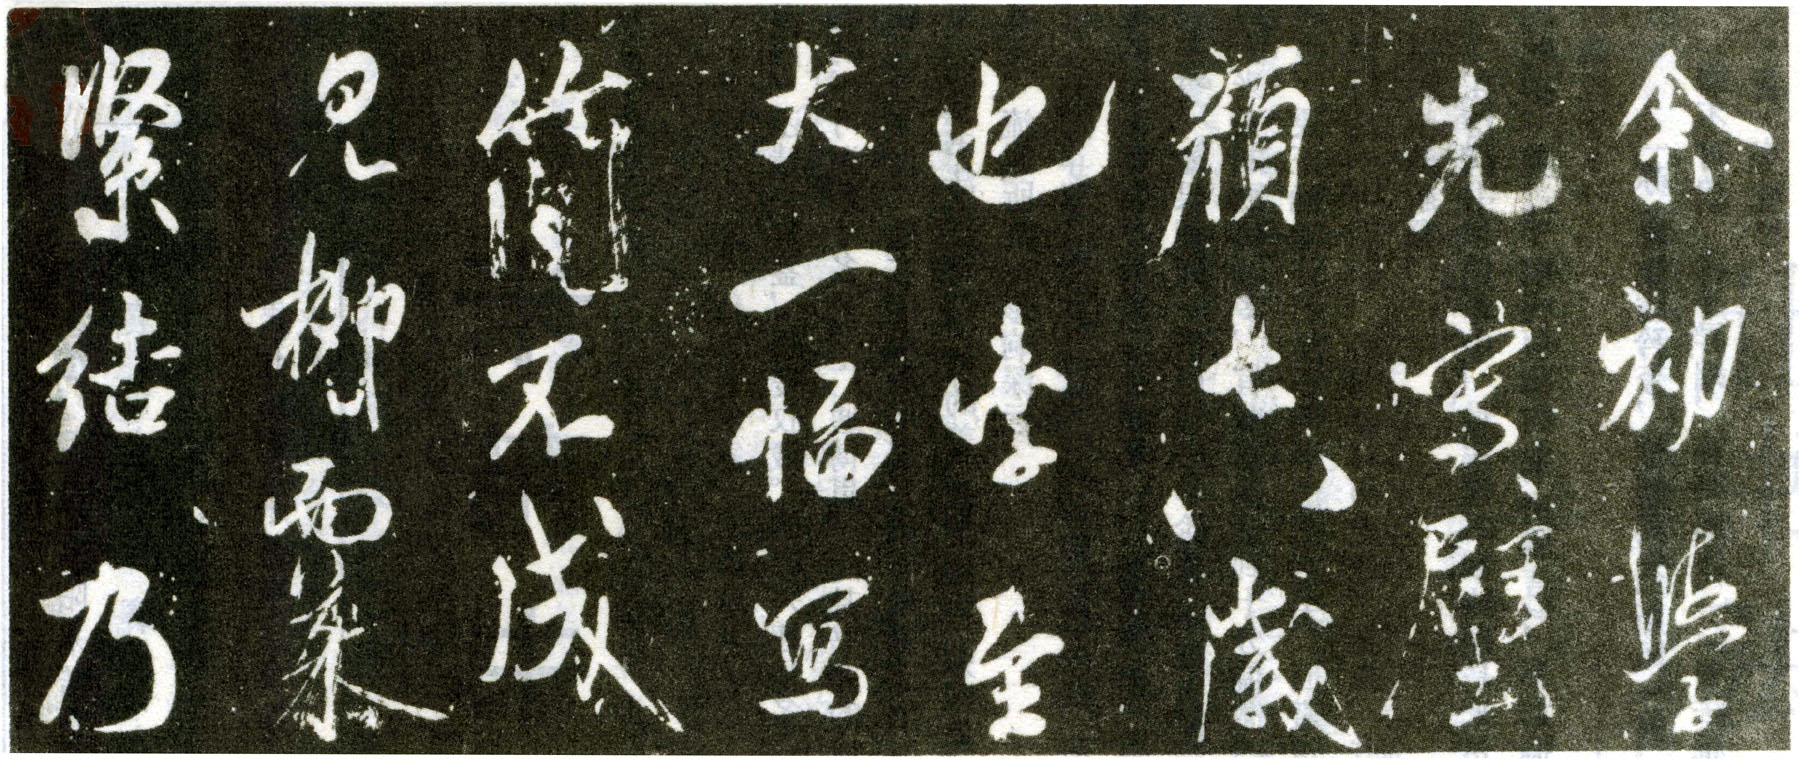 余初學
先寫壁
顏七八歲
也字至
大一幅寫
簡不成
見柳而慕
緊結乃